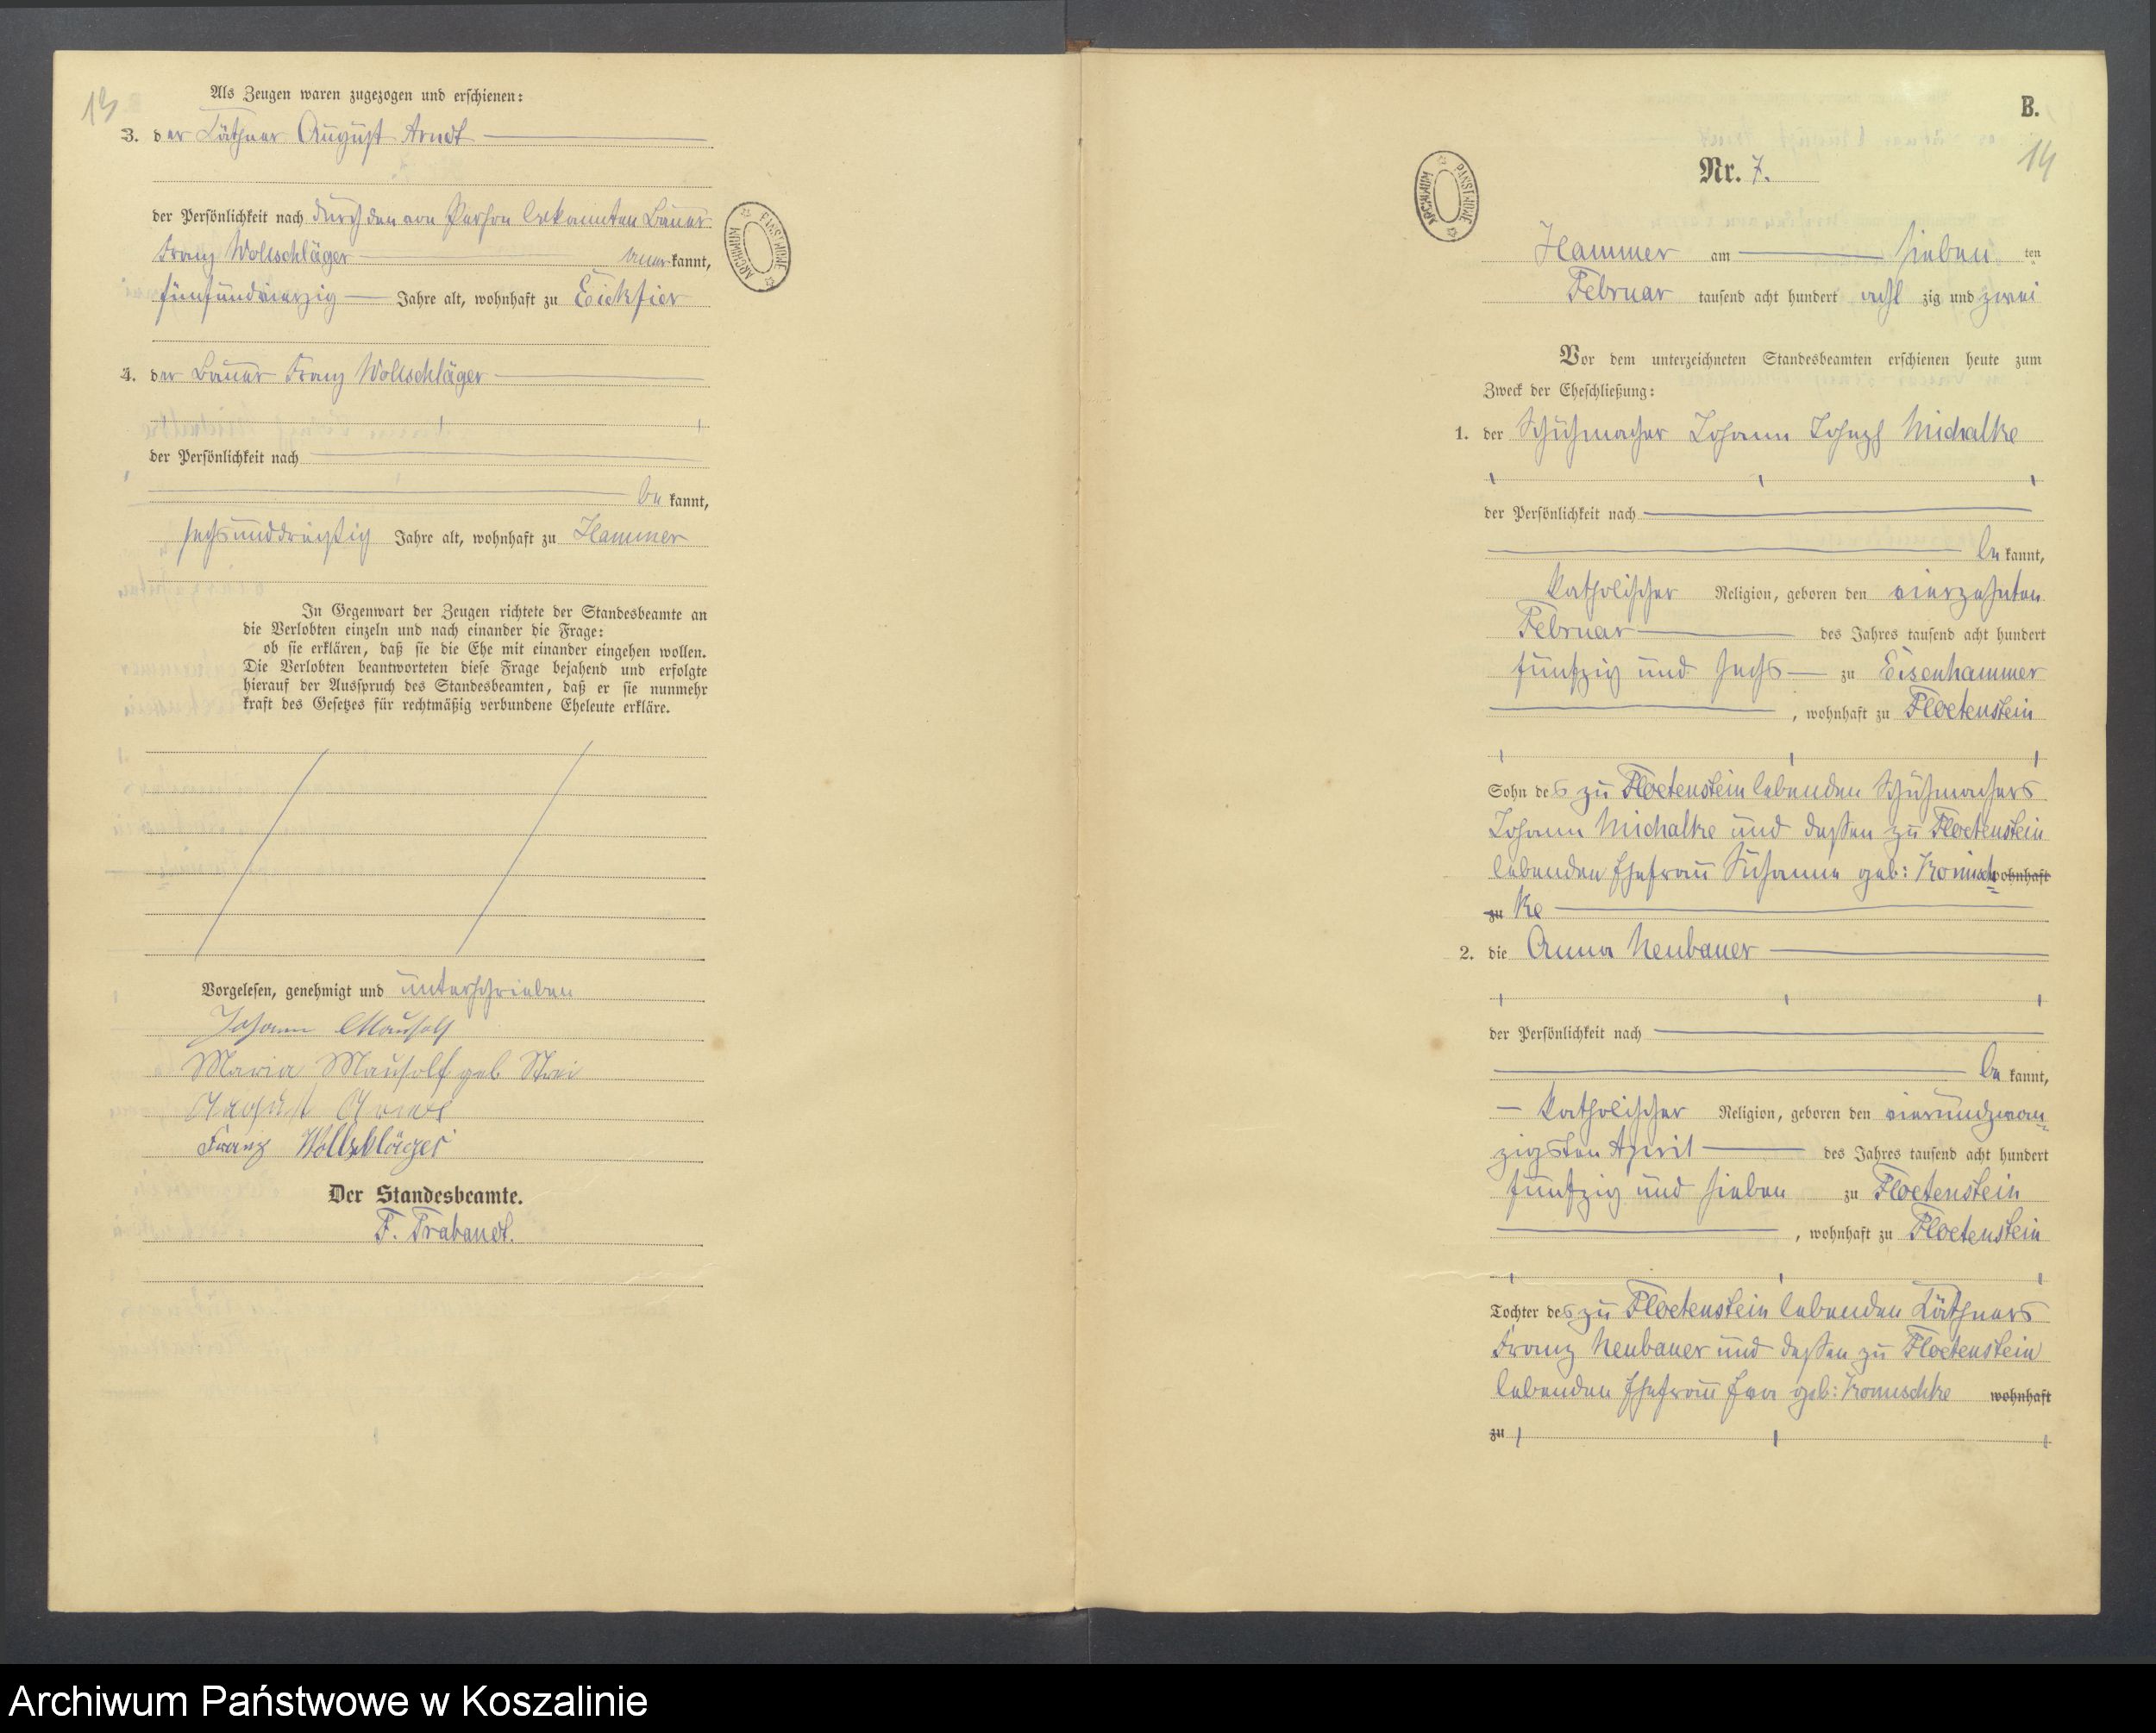 13
Als Zeugen waren zugezogen und erschienen:
3. der Käthner August Arndt
der Persönlichkeit nach durch den von Person bekannten Bauer
Franz Wollschläger anerkannt,
fünfundvierzig Jahre alt, wohnhaft zu Eickfier
4. der Bauer Franz Wollschläger
der Persönlichkeit nach
bekannt,
sechsunddreißig Jahre alt, wohnhaft zu Hammer
In Gegenwart der Zeugen richtete der Standesbeamte an
die Verlobten einzeln und nach einander die Frage:
ob sie erklären, daß sie die Ehe mit einander eingehen wollen.
Die Verlobten beantworteten diese Frage bejahend und erfolgte
hierauf der Ausspruch des Standesbeamten, daß er sie nunmehr
kraft des Gesetzes für rechtmäßig verbundene Eheleute erkläre.
Vorgelesen, genehmigt und unterschrieben
Johann Mausolf
Maria Mausolf geb
August Arndt
Franz Wollschläger
Der Standesbeamte.
F. Trabandt.
ARCHIWUM PAŃSTWOWE
B.
14
Nr. 7.
ARCHIWUM PAŃSTWOWE
Hammer am sieben ten
Februar tausend acht hundert acht zig und zwei
Vor dem unterzeichneten Standesbeamten erschienen heute zum
Zweck der Eheschließung:
1. der Schuhmacher Johann Joseph Michalke
der Persönlichkeit nach
bekannt,
katholischer Religion, geboren den vierzehnten
Februar des Jahres tausend acht hundert
fünfzig und sechs zu Eisenhammer
, wohnhaft zu Floetenstein
Sohn des zu Floetenstein lebenden Schuhmachers
Johann Michalke und dessen zu Floetenstein
lebenden Ehefrau Susanna geb: Konisch wohnhaft
zu ke
2. die Anna Neubauer
der Persönlichkeit nach
bekannt,
katholischer Religion, geboren den vierundzwan
zigsten April des Jahres tausend acht hundert
fünfzig und sieben zu Floetenstein
, wohnhaft zu Floetenstein
Tochter des zu Floetenstein lebenden Käthners
Franz Neubauer und dessen zu Floetenstein
lebenden Ehefrau Eva geb: Konischke wohnhaft
zu
Archiwum Państwowe w Koszalinie